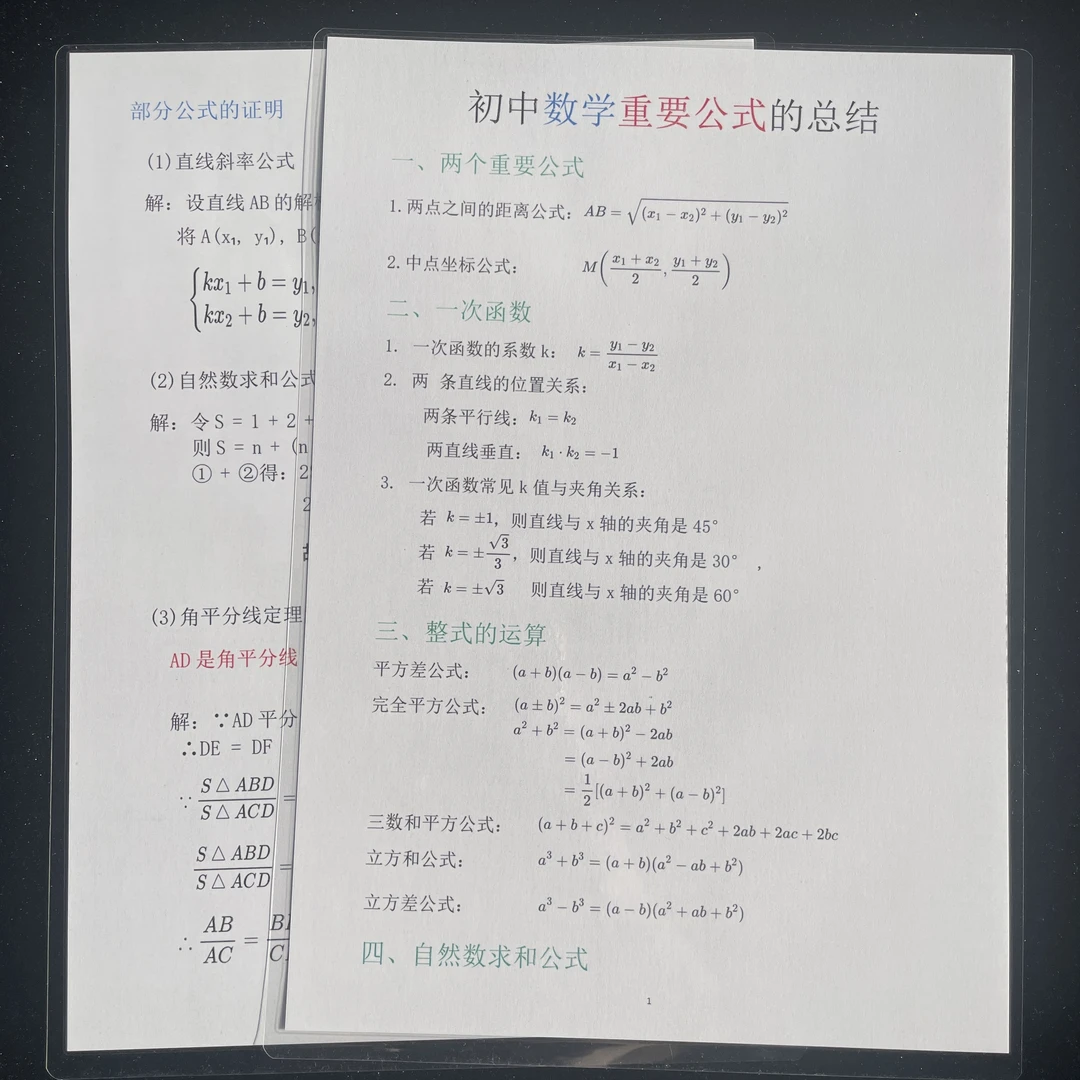 部分公式的证明
(1)直线斜率公式
解：设直线 AB 的解
将 A(x₁, y₁), B(
kx₁ + b = y₁,
kx₂ + b = y₂,
(2)自然数求和公式
解：令 S = 1 + 2 +
则 S = n + (n
① + ②得：2
2
(3)角平分线定理
AD 是角平分线
解：∵AD 平分
∴DE = DF
∵ S△ABD/S△ACD =
S△ABD/S△ACD =
∴ AB/AC =
初中数学重要公式的总结
一、两个重要公式
1.两点之间的距离公式：AB = √((x₁ − x₂)² + (y₁ − y₂)²)
2.中点坐标公式： M((x₁ + x₂)/2, (y₁ + y₂)/2)
二、一次函数
1. 一次函数的系数 k： k = (y₁ − y₂)/(x₁ − x₂)
2. 两 条直线的位置关系：
两条平行线：k₁ = k₂
两直线垂直： k₁ · k₂ = −1
3. 一次函数常见 k 值与夹角关系：
若 k = ±1，则直线与 x 轴的夹角是 45°
若 k = ±√3/3，则直线与 x 轴的夹角是 30° ，
若 k = ±√3 则直线与 x 轴的夹角是 60°
三、整式的运算
平方差公式： (a + b)(a − b) = a² − b²
完全平方公式： (a ± b)² = a² ± 2ab + b²
a² + b² = (a + b)² − 2ab
= (a − b)² + 2ab
= 1/2[(a + b)² + (a − b)²]
三数和平方公式： (a + b + c)² = a² + b² + c² + 2ab + 2ac + 2bc
立方和公式： a³ + b³ = (a + b)(a² − ab + b²)
立方差公式： a³ − b³ = (a − b)(a² + ab + b²)
四、自然数求和公式
1